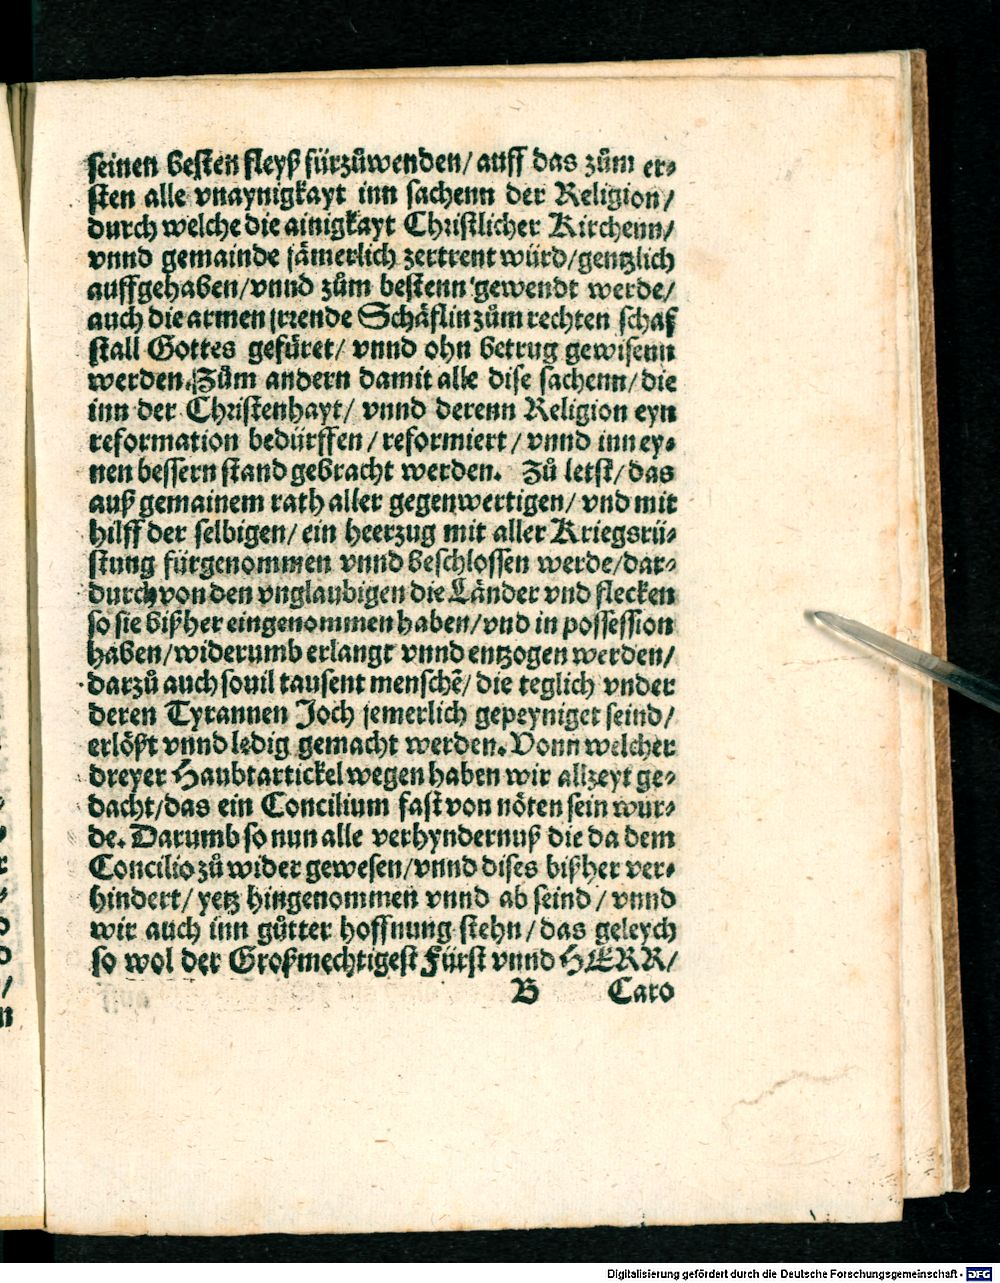 seinen besten fleyß fürzůwenden/ auff das zům er⸗
sten alle vnaynigkayt inn sachenn der Religion/
durch welche die ainigkayt Christlicher Kirchenn/
vnnd gemainde jämerlich zertrent würd/gentzlich
auffgehaben/vnnd zům bestenn gewendt werde/
auch die armen jrrende Schäflin zům rechten schaf
stall Gottes gefüret/ vnnd ohn betrug gewisenn
werden. Zům andern damit alle dise sachenn/ die
inn der Christenhayt/ vnnd derenn Religion eyn
reformation bedürffen/ reformiert/ vnnd inn ey⸗
nen bessern stand gebracht werden. Zů letst/ das
auß gemainem rath aller gegenwertigen/ vnd mit
hilff der selbigen/ ein heerzug mit aller Kriegsrü⸗
stung fürgenommen vnnd beschlossen werde/dar⸗
durch von den vnglaubigen die Länder vnd flecken
so sie bißher eingenommen haben/vnd in possession
haben/widerumb erlangt vnnd entzogen werden/
darzů auch souil tausent menschē/ die teglich vnder
deren Tyrannen Joch jemerlich gepeyniget seind/
erlößt vnnd ledig gemacht werden. Vonn welcher
dreyer Haubtartickel wegen haben wir allzeyt ge⸗
dacht/das ein Concilium fast von nöten sein wur⸗
de. Darumb so nun alle verhyndernuß die da dem
Concilio zů wider gewesen/vnnd dises bißher ver⸗
hindert/ yetz hingenommen vnnd ab seind/ vnnd
wir auch inn gůtter hoffnung stehn/ das geleych
so wol der Großmechtigest Fürst vnnd HERR/
B Caro
Digitalisierung gefördert durch die Deutsche Forschungsgemeinschaft - DFG